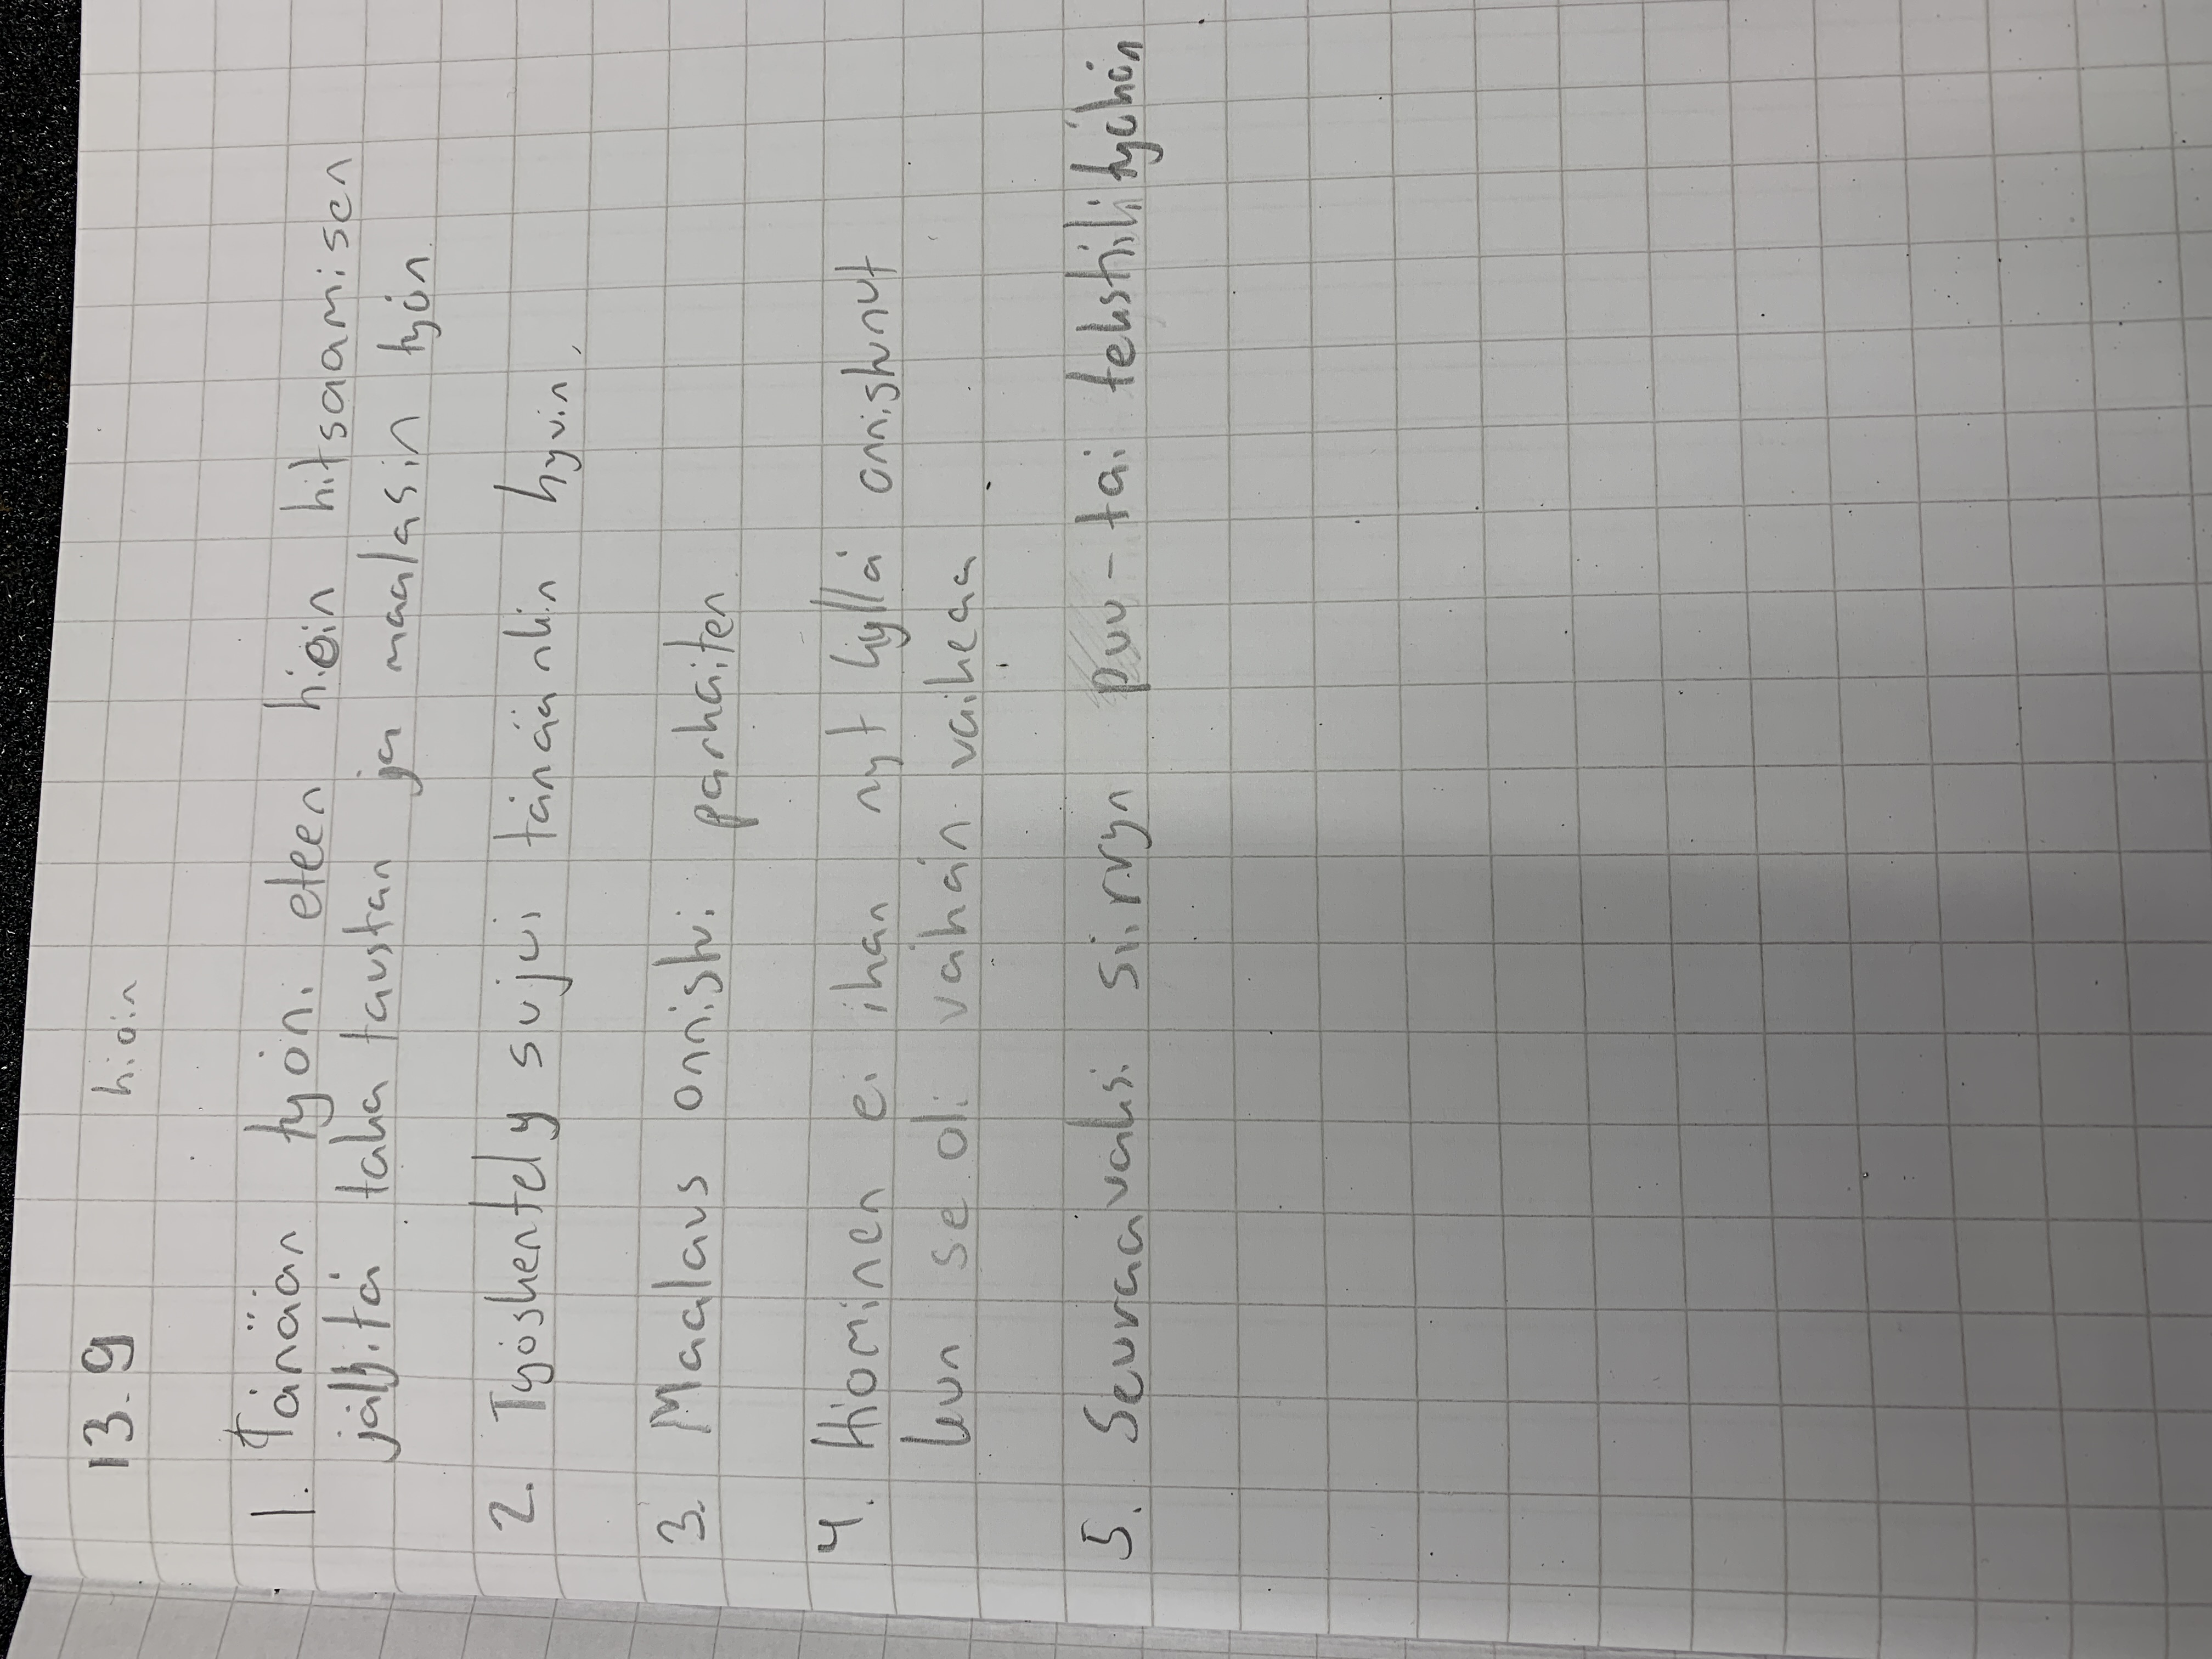 13.9 hioin
1. Tänään työni eteen hioin hitsaamisen
jälkiä taka taustan ja maalasin työn.
2. Työskentely sujui tänäänkin hyvin.
3. Maalaus onnistui parhaiten
4. Hiominen ei ihan nyt kyllä onnistunut
kun se oli vähän vaihea
5. Seuraavaksi siirryn puu-tai tekstiilityöhön